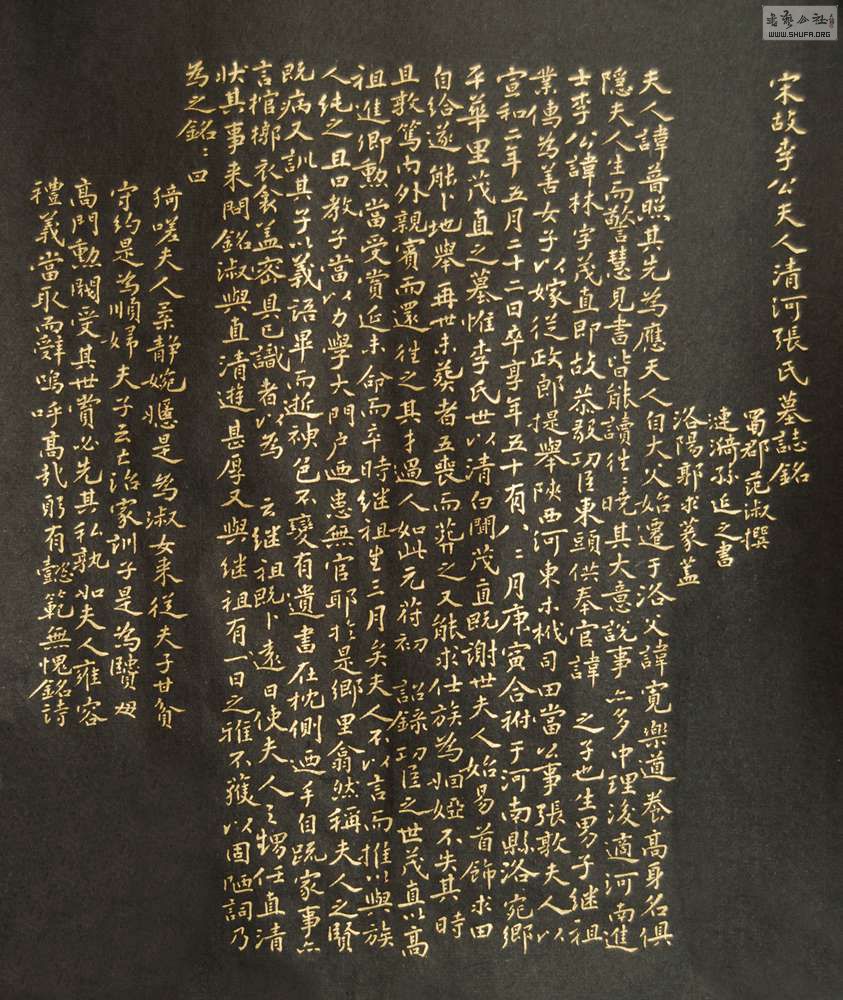 宋故李公夫人清河張氏墓誌銘
蜀郡范淑撰
漣漪孫近之書
洛陽郭求篆蓋
夫人諱普照其先為應夫人自大父始遷于洛父諱寬樂道養高身名俱
隱夫人生而警慧見書皆能讀往往曉其大意說事亦多中理浚適河南進
士李公諱林字茂直即故恭毅功臣東頭供奉官諱之子也生男子継祖
業儒為善女子以嫁從政郎提舉陝西河東木栰司田當公事張歌夫人以
宣和二年五月二十二日卒享年五十有八二月庚寅合祔于河南縣洛宛鄉
平華里茂直之墓惟李氏世以清白聞茂直既謝世夫人始易首飾求田
自給遂能卜地舉再世未葬者五喪而葬之又能求仕族為婣婭不失其時
且敦篤内外親賓而還往之其才過人如此元符初詔錄功臣之世茂直以高
祖進卿勲當受賞近未命而卒時継祖生三月矣夫人不以言而推以與族
人純之且曰教子當以力學大門户迺患無官耶於是鄉里翕然稱夫人之賢
既病又訓其子以義語畢而逝神色不變有遺書在枕側迺手自䟽家事亦
言棺槨衣衾盖容具已識者以為云継祖既卜遠日使夫人之甥任直清
狀其事来閊銘淑與直清遊甚厚又與継祖有一日之雅不獲以固陋詞乃
為之銘:曰
猗嗟夫人柔静婉嬺是為淑女来從夫子甘貧
守約是為順婦夫子云亡治家訓子是為賢母
高門勲閥受其世賞必先其私孰如夫人雍容
禮義當取而辭嗚呼髙哉躬有懿範無愧銘詩
書藝公社
WWW.SHUFA.ORG